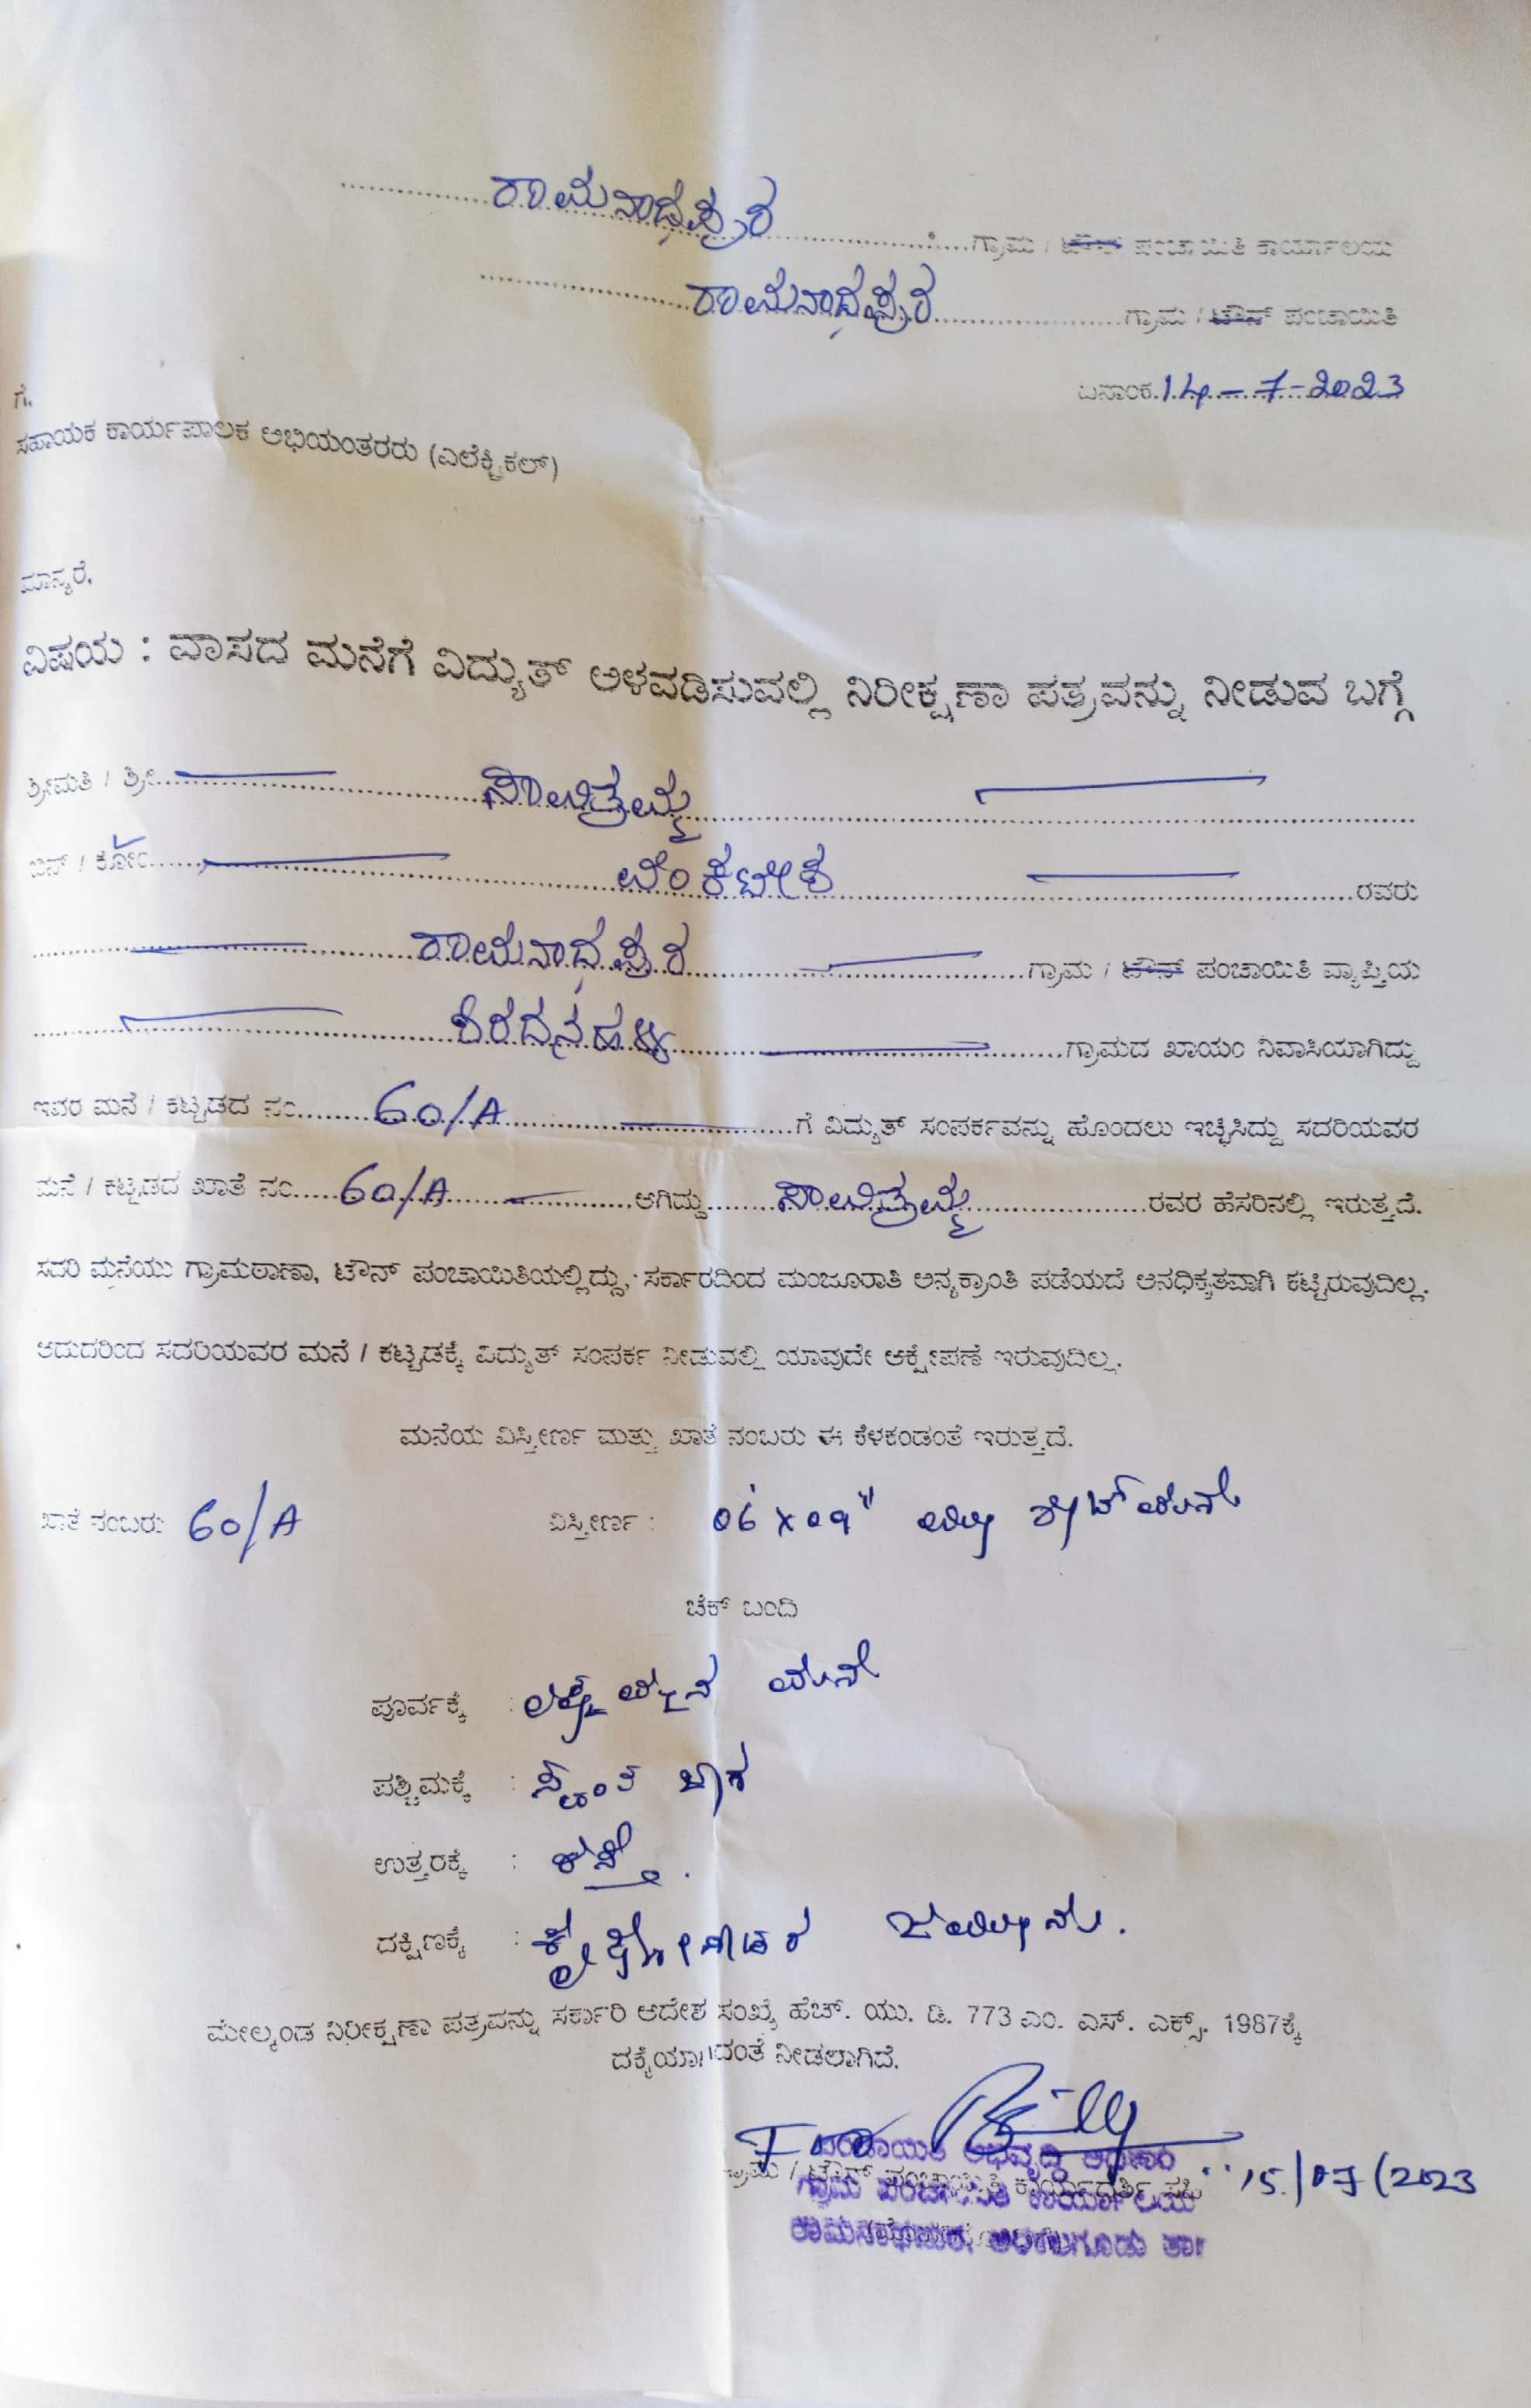 ರಾಮನಾಥಪುರ ಗ್ರಾಮ / ಟೌನ್ ಪಂಚಾಯಿತಿ ಕಾರ್ಯಾಲಯ
ರಾಮನಾಥಪುರ ಗ್ರಾಮ / ಟೌನ್ ಪಂಚಾಯಿತಿ
ದಿನಾಂಕ. 14-7-2023
ಗೆ,
ಸಹಾಯಕ ಕಾರ್ಯಪಾಲಕ ಅಭಿಯಂತರರು (ಎಲೆಕ್ಟ್ರಿಕಲ್)
ಮಾನ್ಯರೆ,
ವಿಷಯ : ವಾಸದ ಮನೆಗೆ ವಿದ್ಯುತ್ ಅಳವಡಿಸುವಲ್ಲಿ ನಿರೀಕ್ಷಣಾ ಪತ್ರವನ್ನು ನೀಡುವ ಬಗ್ಗೆ
ಶ್ರೀಮತಿ / ಶ್ರೀ ಸಾವಿತ್ರಮ್ಮ
ಬಿನ್ / ಕೋಂ ವೆಂಕಟೇಶ ರವರು
ರಾಮನಾಥಪುರ ಗ್ರಾಮ / ಟೌನ್ ಪಂಚಾಯಿತಿ ವ್ಯಾಪ್ತಿಯ
ಶಿರದನಹಳ್ಳಿ ಗ್ರಾಮದ ಖಾಯಂ ನಿವಾಸಿಯಾಗಿದ್ದು
ಇವರ ಮನೆ / ಕಟ್ಟಡದ ನಂ 60/A ಗೆ ವಿದ್ಯುತ್ ಸಂಪರ್ಕವನ್ನು ಹೊಂದಲು ಇಚ್ಛಿಸಿದ್ದು ಸದರಿಯವರ
ಮನೆ / ಕಟ್ಟಡದ ಖಾತೆ ನಂ 60/A ಆಗಿದ್ದು ಸಾವಿತ್ರಮ್ಮ ರವರ ಹೆಸರಿನಲ್ಲಿ ಇರುತ್ತದೆ.
ಸದರಿ ಮನೆಯು ಗ್ರಾಮಠಾಣಾ, ಟೌನ್ ಪಂಚಾಯಿತಿಯಲ್ಲಿದ್ದು, ಸರ್ಕಾರದಿಂದ ಮಂಜೂರಾತಿ ಅನ್ಯಕ್ರಾಂತಿ ಪಡೆಯದೆ ಅನಧಿಕೃತವಾಗಿ ಕಟ್ಟಿರುವುದಿಲ್ಲ.
ಆದುದರಿಂದ ಸದರಿಯವರ ಮನೆ / ಕಟ್ಟಡಕ್ಕೆ ವಿದ್ಯುತ್ ಸಂಪರ್ಕ ನೀಡುವಲ್ಲಿ ಯಾವುದೇ ಆಕ್ಷೇಪಣೆ ಇರುವುದಿಲ್ಲ.
ಮನೆಯ ವಿಸ್ತೀರ್ಣ ಮತ್ತು ಖಾತೆ ನಂಬರು ಈ ಕೆಳಕಂಡಂತೆ ಇರುತ್ತದೆ.
ಖಾತೆ ನಂಬರು 60/A ವಿಸ್ತೀರ್ಣ : 06'x09"
ಚೆಕ್ ಬಂದಿ
ಪೂರ್ವಕ್ಕೆ : ಲಕ್ಷ್ಮಮ್ಮನ ಮನೆ
ಪಶ್ಚಿಮಕ್ಕೆ : ಸ್ವಂತ ಜಾಗ
ಉತ್ತರಕ್ಕೆ : ರಸ್ತೆ.
ದಕ್ಷಿಣಕ್ಕೆ : ಜಮೀನು.
ಮೇಲ್ಕಂಡ ನಿರೀಕ್ಷಣಾ ಪತ್ರವನ್ನು ಸರ್ಕಾರಿ ಆದೇಶ ಸಂಖ್ಯೆ ಹೆಚ್. ಯು. ಡಿ. 773 ಎಂ. ಎಸ್. ಎಕ್ಸ್. 1987ಕ್ಕೆ
ನೀಡಲಾಗಿದೆ.
ಪಂಚಾಯಿತಿ ಅಭಿವೃದ್ಧಿ
ಗ್ರಾಮ / ಟೌನ್ ಪಂಚಾಯಿತಿ ಕಾರ್ಯದರ್ಶಿ ಸಹಿ 15/07/2023
ಗ್ರಾಮ ಪಂಚಾಯಿತಿ ಕಾರ್ಯಾಲಯ
ರಾಮನಾಥಪುರ, ಅರಕಲಗೂಡು ತಾ||